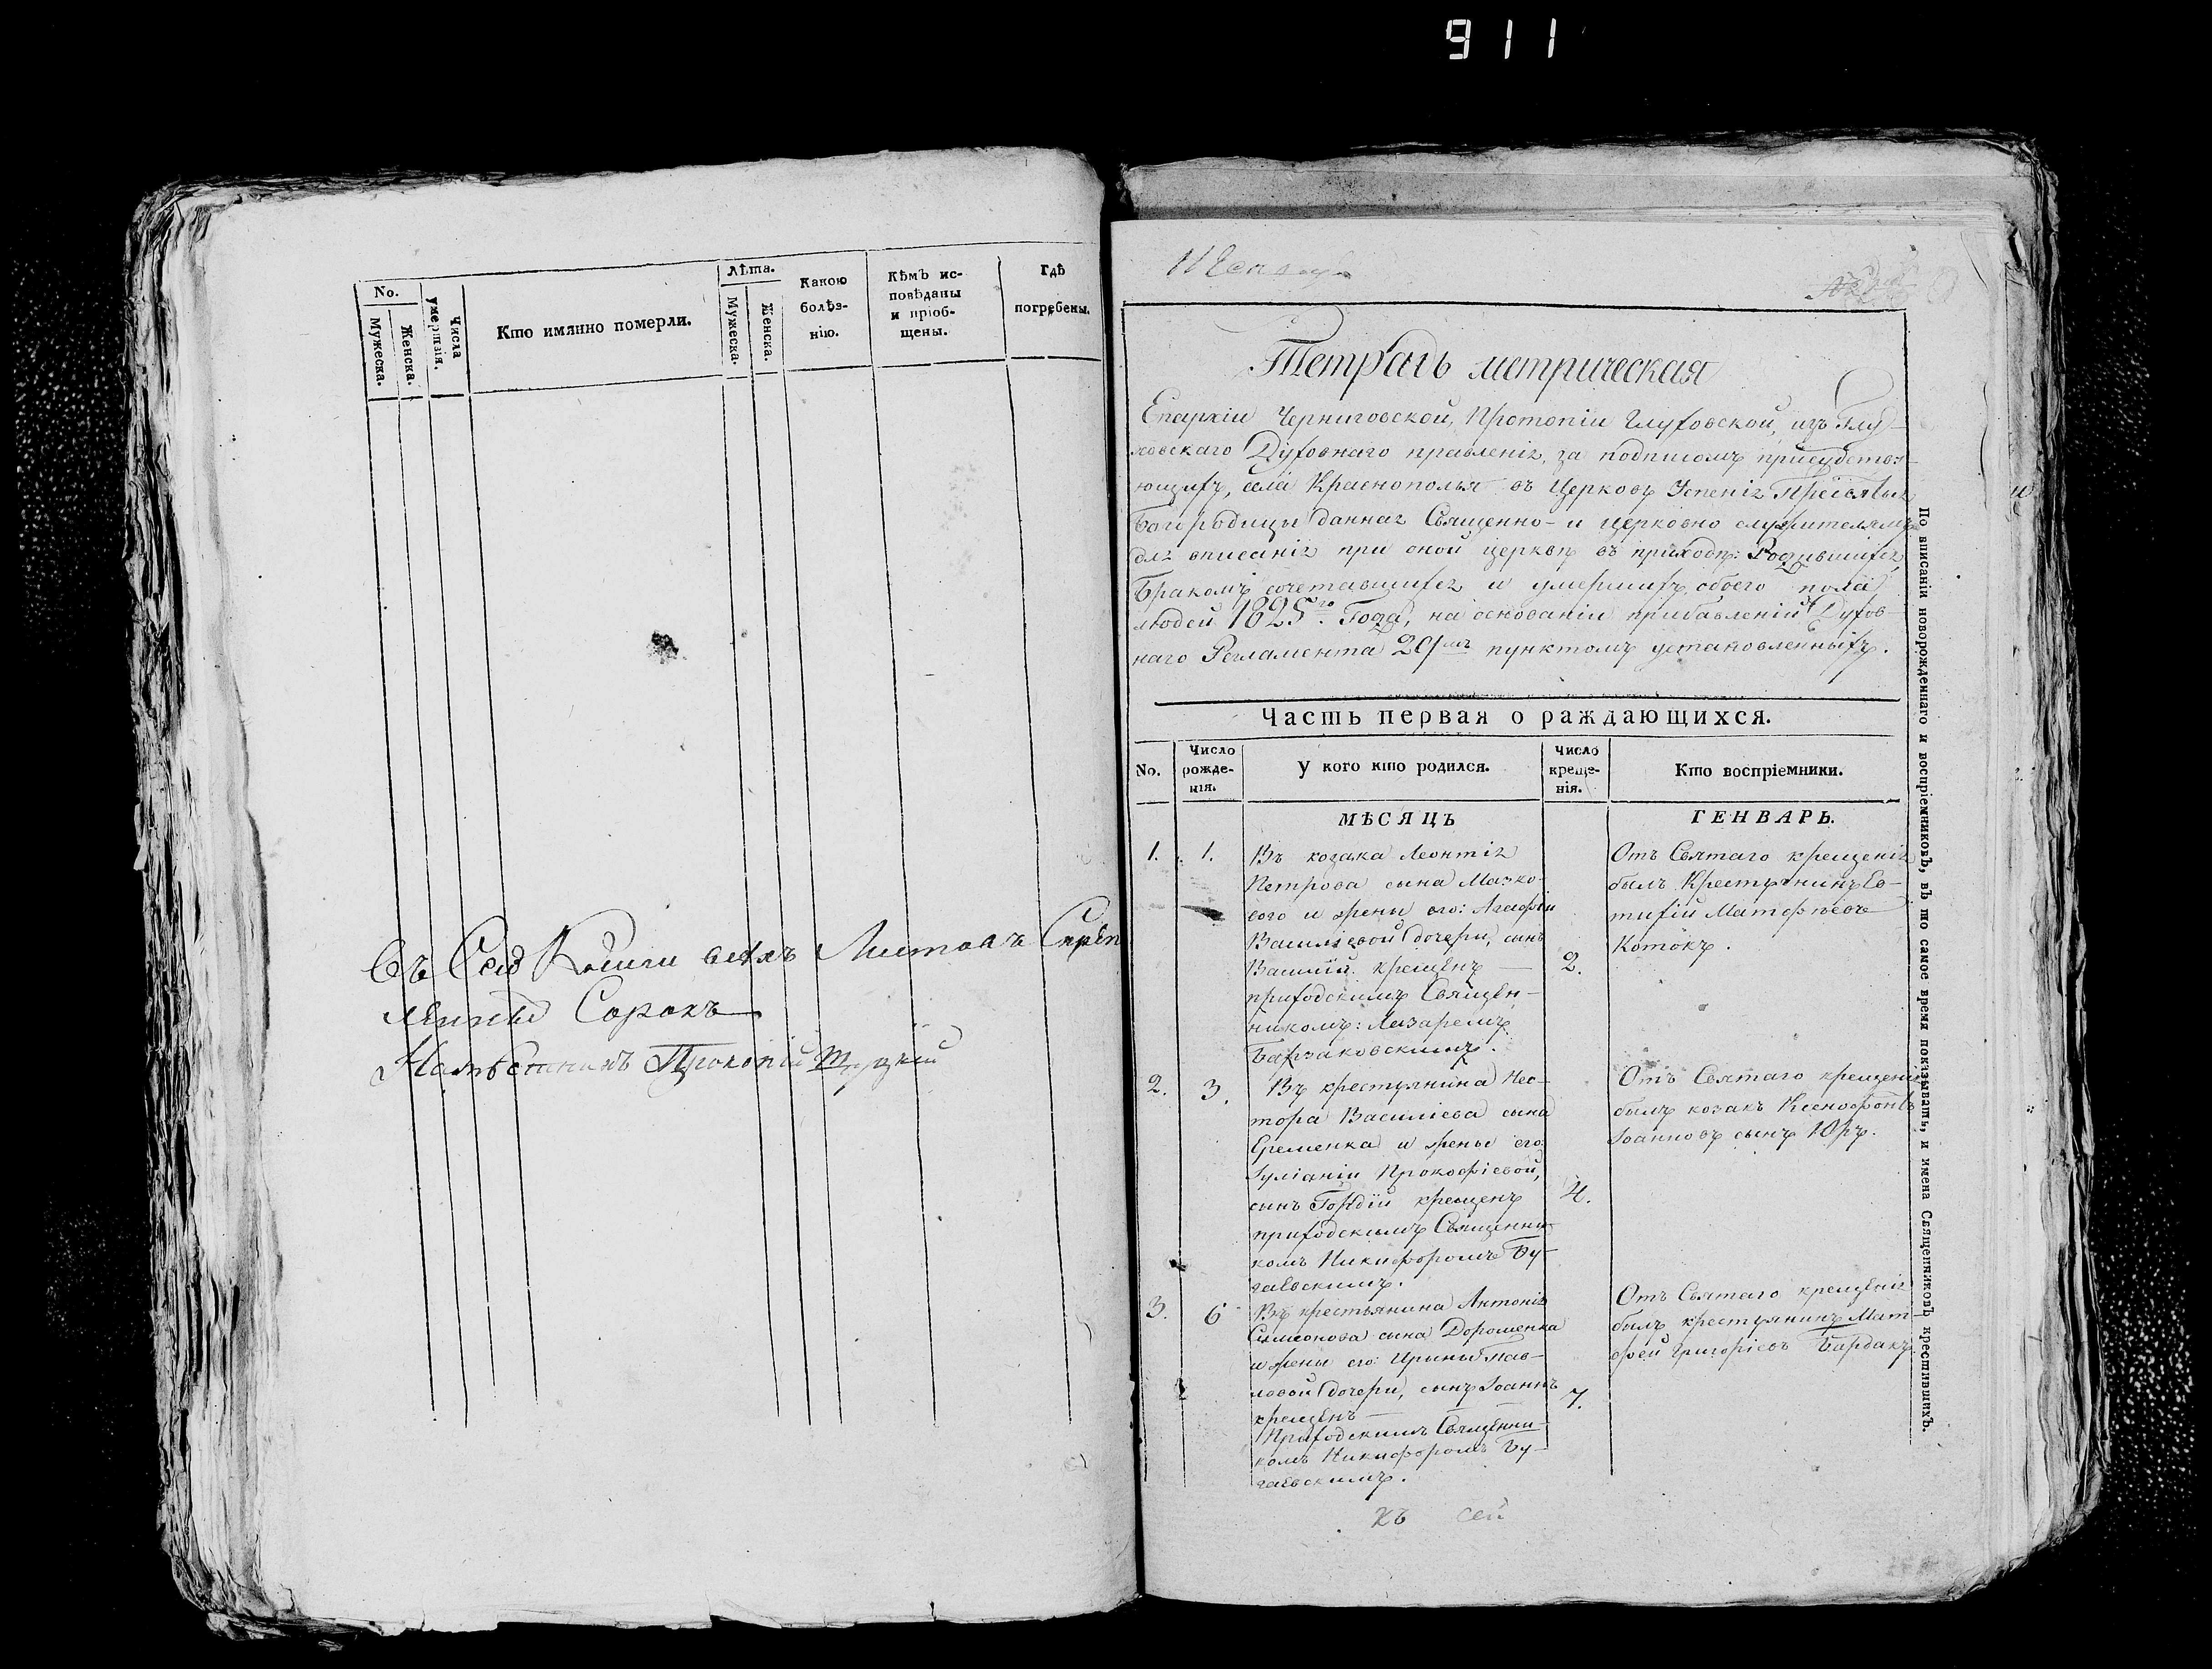 911
No.
Мужеска.
Женска.
Числа умертвія.
Кто имянно померли.
Лѣта.
Мужеска.
Женска.
Какою
болѣз-
нію.
Кѣмъ ис-
повѣданы
и пріоб-
щены.
Гдѣ
погребены.
Въ Сей Книги всѣхъ Листовъ Скрѣп
Сорокъ
Намѣстникъ Прокопій
Тетрать метрическая
Епархіи Черниговской, Протопіи Глуховской, изъ Глу-
ховскаго Духовнаго правленія, за подписомъ присудство-
ющихъ, села Краснополья въ Церковь Успенія Пресвятыя
Богородицы данная Священно- и церковно служителямъ
для вписанія при оной церквѣ въ приходѣ: Родившихся
Бракомъ сочетавшихся и умершихъ обоего пола
людей 1825го. Года, на основаніи прибавленій Духов-
наго Регламента 29мъ пунктомъ установленныхъ.
Часть первая о раждающихся.
No.
Число
рожде-
нія.
У кого кто родился.
Число
креще-
нія.
Кто воспріемники.
МѢСЯЦЪ
ГЕНВАРЬ.
1.
1.
Въ козака Леонтія
Петрова сына Мазко-
вого и жены его: Агафіи
Василіевой дочери, сынъ
Василій крещенъ —
приходскимъ Священ-
никомъ: Лазаремъ
Барзаковскимъ.
2.
Отъ Святаго крещенія
былъ Крестянинъ Ев-
тихій Матфѣевъ
Котокъ.
2.
3.
Въ крестянина Нес-
тора Василіева сына
Еременка и жены его
Іуліаніи Прокофіевой,
сынъ Гордій крещенъ
приходскимъ Священни-
комъ Никифоромъ Бу-
гаевскимъ.
4.
Отъ Святаго крещенія
былъ козакъ Ксенофонтъ
Іоанновъ сынъ Юръ.
3.
6
Въ крестьянина Антонія
Симеонова сына Дорошенка
и жены его: Ирины Пав-
ловой дочери, сынъ Іоаннъ
крещенъ —
Приходскимъ Священни-
комъ Никифоромъ Бу-
гаевскимъ.
7.
Отъ Святаго крещенія
былъ крестянинъ Мат-
фей Григоріевъ Бардакъ
къ сей
По вписаніи новорожденнаго и воспріемниковъ, въ то самое время показывать, и имена Священниковъ крестившихъ.